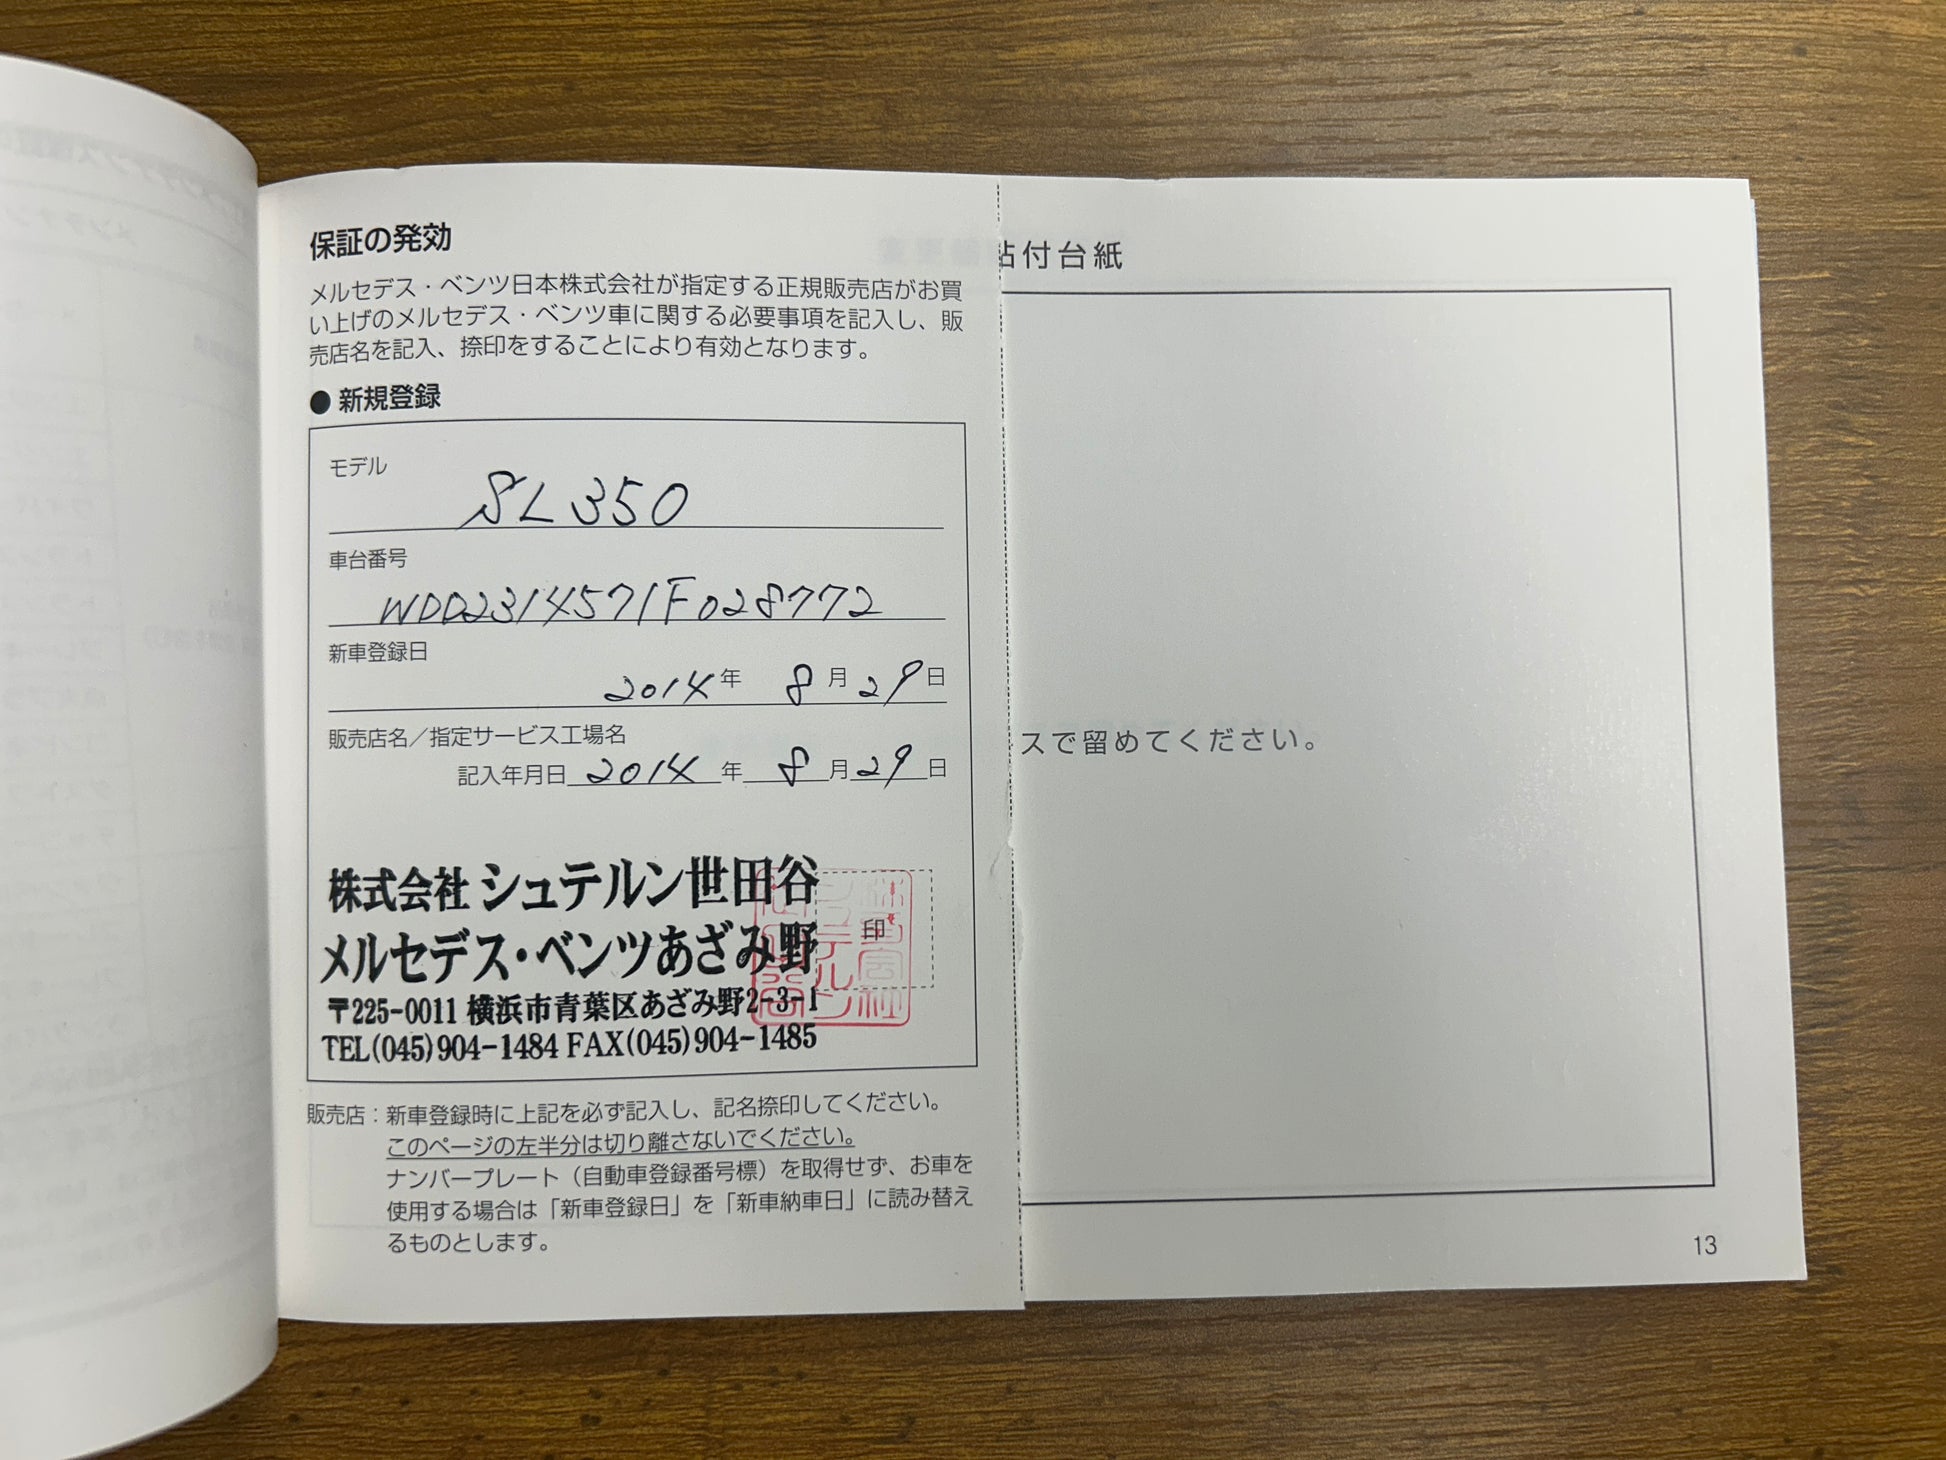 保証の発効
メルセデス・ベンツ日本株式会社が指定する正規販売店がお買
い上げのメルセデス・ベンツ車に関する必要事項を記入し、販
売店名を記入、捺印をすることにより有効となります。
● 新規登録
モデル
SL350
車台番号
WDD2314571F028772
新車登録日
2014年 8月29日
販売店名／指定サービス工場名
記入年月日 2014年 8月29日
株式会社 シュテルン世田谷
メルセデス・ベンツあざみ野
〒225-0011 横浜市青葉区あざみ野2-3-1
TEL(045)904-1484 FAX(045)904-1485
印
株式会社
シュテルン
世田谷
販売店：新車登録時に上記を必ず記入し、記名捺印してください。
このページの左半分は切り離さないでください。
ナンバープレート（自動車登録番号標）を取得せず、お車を
使用する場合は「新車登録日」を「新車納車日」に読み替え
るものとします。
付台紙
スで留めてください。
13